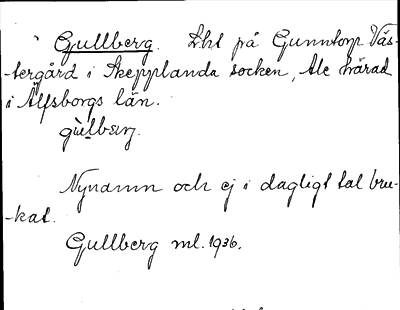 Gullberg. Lht på Gunntorp Väs-
tergård i Skepplanda socken, Ale härad
i Älfsborgs län.
Nynamn och ej i dagligt tal bru-
kat.
Gullberg ml. 1936.